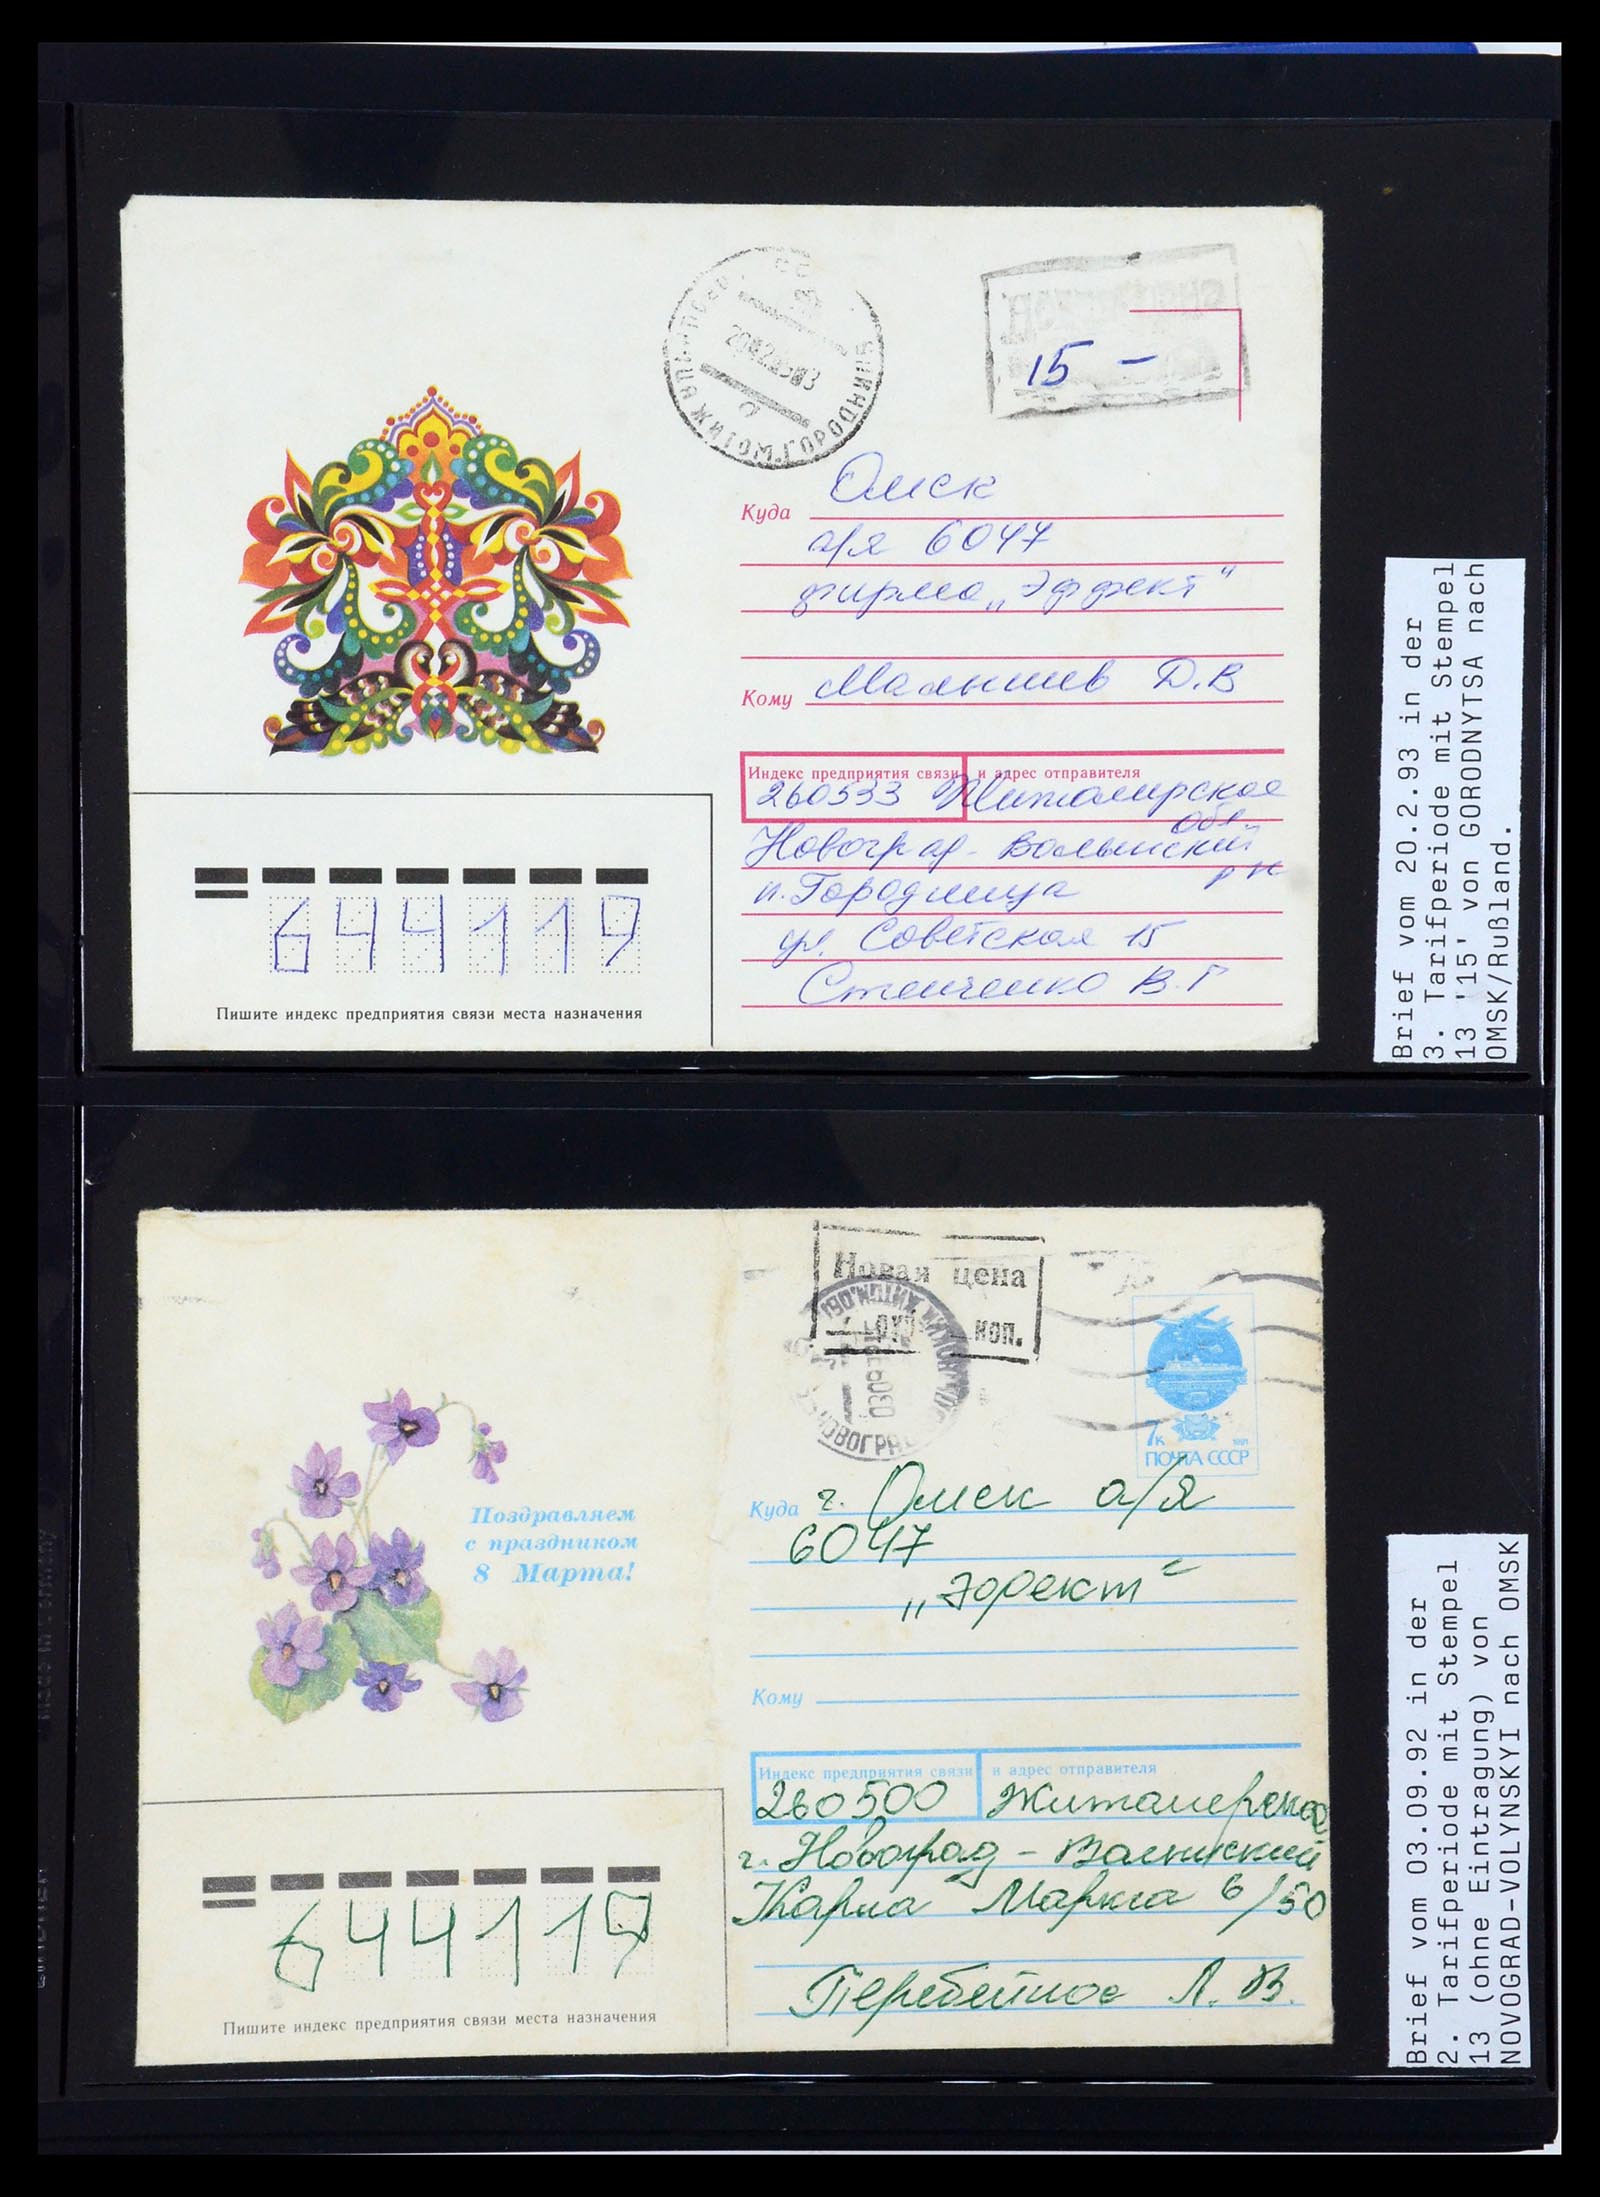 15 —
Куда Омск
а/я 6047
фирма „Эффект“
Кому Малышев Д.В
Индекс предприятия связи и адрес отправителя
260533 Житомирская
обл.
Новоград-Волынский
р-н
п. Городница
ул. Советская 15
Стенченко В.Г
644119
Пишите индекс предприятия связи места назначения
Brief vom 20.2.93 in der
3. Tarifperiode mit Stempel
13 '15' von GORODNYTSA nach
OMSK/Rußland.
Новая цена
коп.
7к 1991
ПОЧТА СССР
Поздравляем
с праздником
8 Марта!
Куда г. Омск а/я
6047
„Эфект“
Кому
Индекс предприятия связи и адрес отправителя
260500 Житомирская
г. Новоград-Волынский
Карла Маркса 6/50
Перебейнос Л.В.
644119
Пишите индекс предприятия связи места назначения
Brief vom 03.09.92 in der
2. Tarifperiode mit Stempel
13 (ohne Eintragung) von
NOVOGRAD-VOLYNSKYI nach OMSK